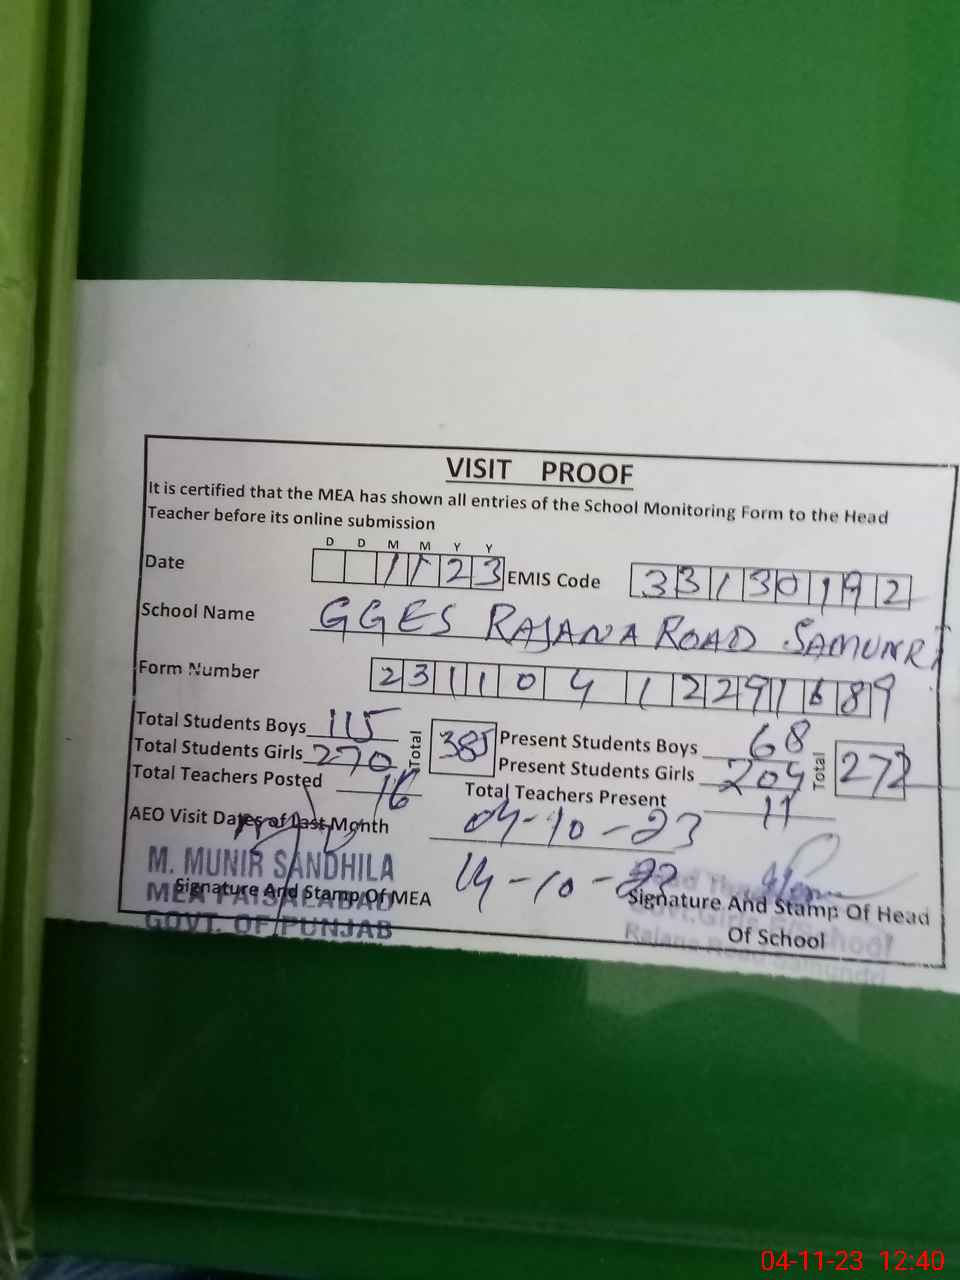 VISIT PROOF
It is certified that the MEA has shown all entries of the School Monitoring Form to the Head
Teacher before its online submission
D D M M Y Y
Date 1 1 2 3 EMIS Code 3 3 1 3 0 1 9 2
School Name GGES RAJANA ROAD SAMUNRI
Form Number 2 3 1 1 0 4 1 2 2 9 1 6 8 9
Total Students Boys 115 Total 385 Present Students Boys 68 Total 272
Total Students Girls 270 Present Students Girls 204
Total Teachers Posted 16 Total Teachers Present 11
AEO Visit Dates of Last Month 04-10-23
M. MUNIR SANDHILA
14-10-23
MEA FAISALABAD
Signature And Stamp Of MEA Signature And Stamp Of Head
Of School
GOVT. OF PUNJAB
Govt. Girls School
Rajana Road Samundri
04-11-23 12:40